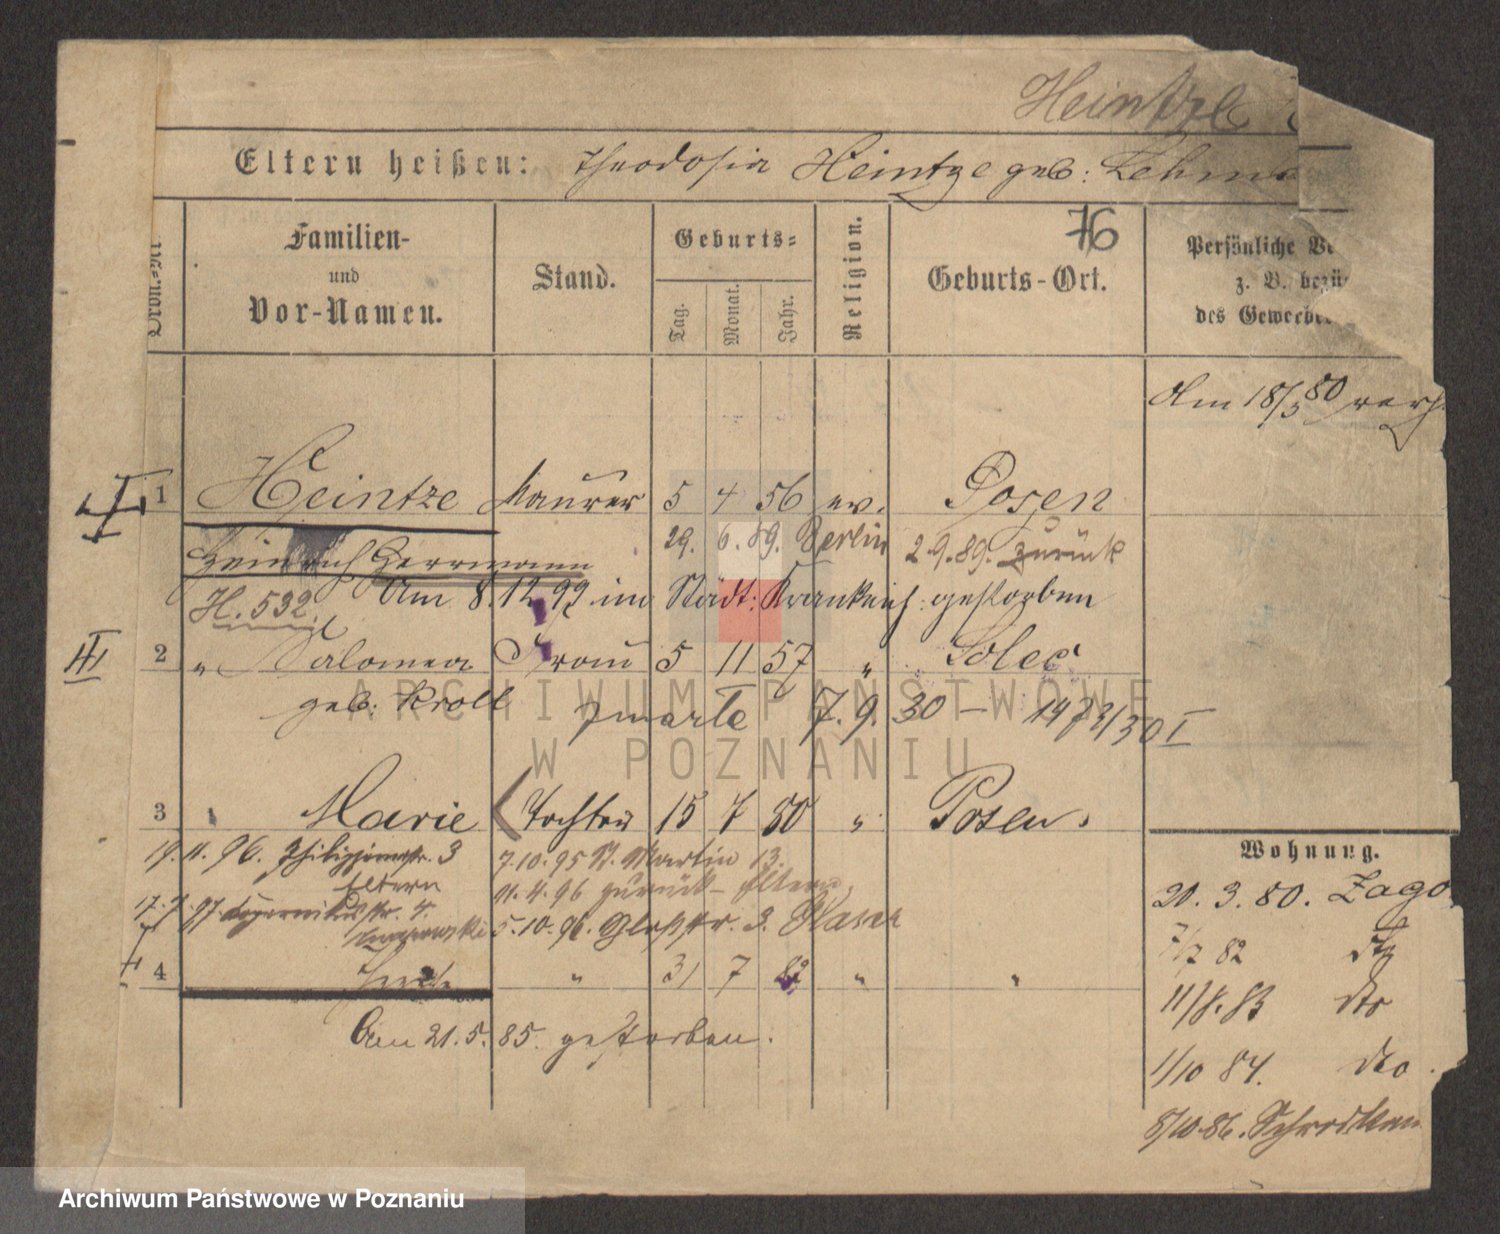 Heintze
Eltern heißen: Theodosia Heintze geb: Lehm
Ordn.-Nr.
Familien-
und
Vor-Namen.
Stand.
Geburts-
Tag.
Monat.
Jahr.
Religion.
76
Geburts-Ort.
Persönliche Ve
z. B. bezü
des Gewerbe
Am 18/3 80 verh.
I 1 Heintze Maurer 5 4 56 ev. Posen
29. 6. 89. Berlin 2.9.89. zurück
Heinrich Herrmann
Am 8. 12 99 im Städt: Krankenh. gestorben
H. 532.
II 2 " Salomea Frau 5 11 57 " Solec
geb. Kroll
zmarła 7. 9. 30 – 1472/30 I
3 " Marie Tochter 15 7 80 " Posen.
3
7.10.95 St. Martin 13.
Eltern
11.4.96 zurück – Eltern
5.10.96.
4 " 31 7 82 " "
Am 21. 5. 85. gestorben.
Wohnung.
20. 3. 80. Zago
7/7 82 dto
11/8. 83 dto
1/10 84. dto.
8/10.86. Schrodkam
ARCHIWUM PAŃSTWOWE
W POZNANIU
Archiwum Państwowe w Poznaniu